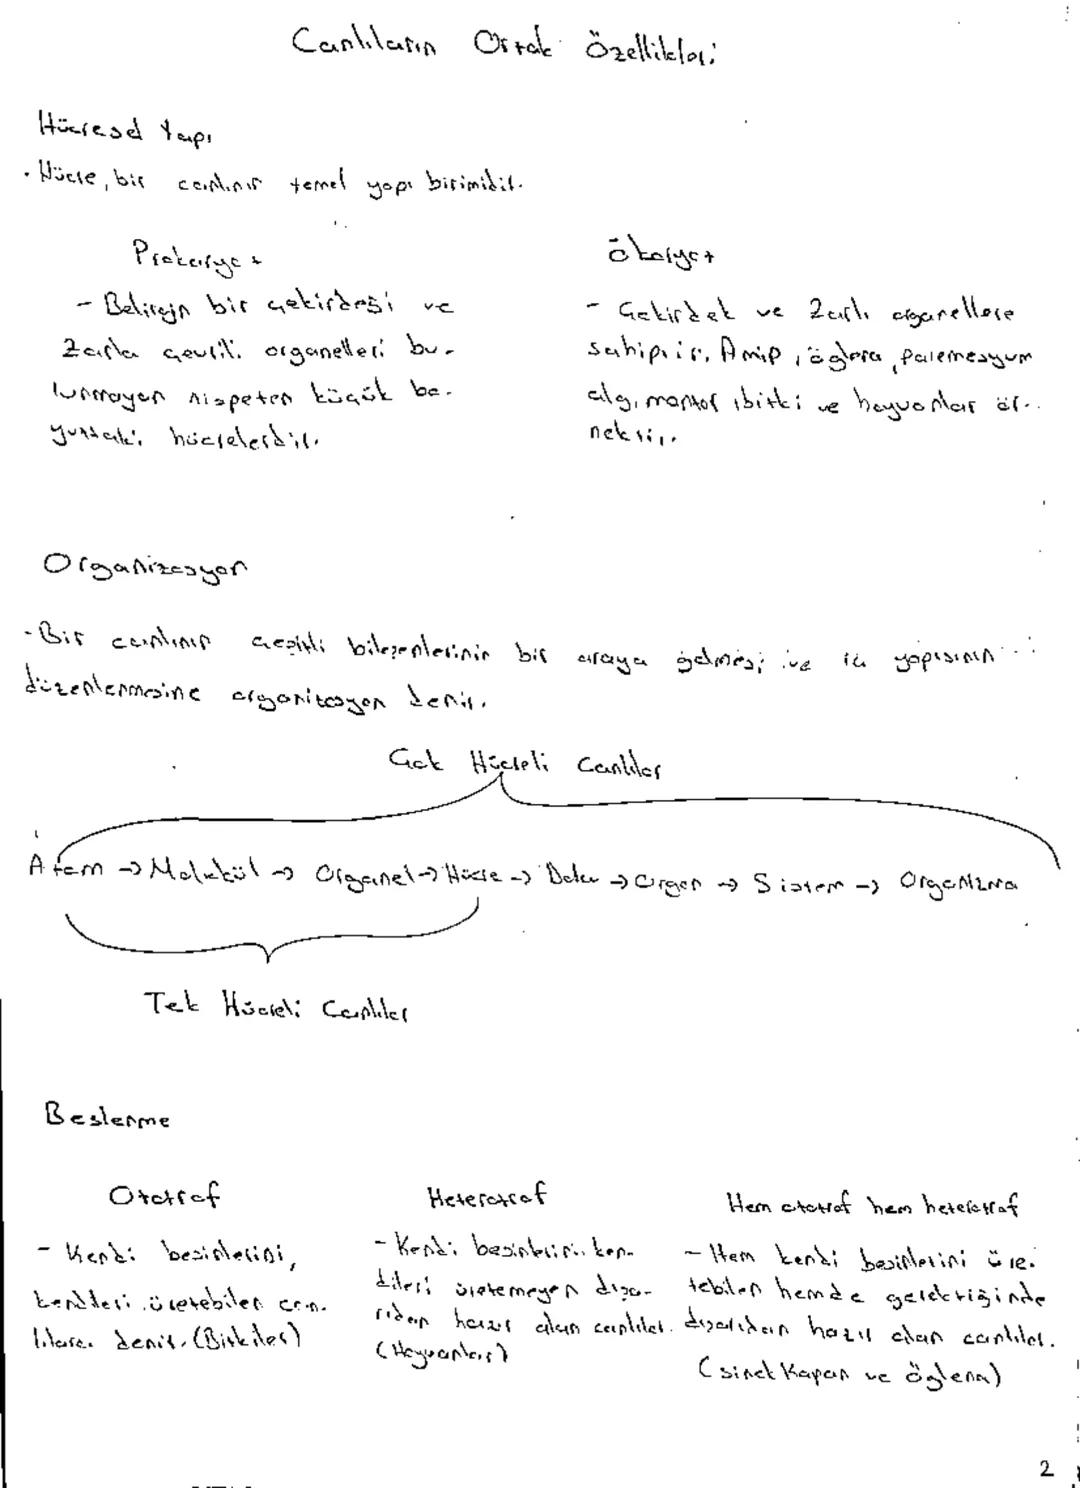 Canlıların Ortak Özellikleri
Hücresel Yapı
• Hücre, bir canlının temel yapı birimidir.
Prokaryot
- Belirgin bir çekirdeği ve
zarla çevrili organelleri bu-
lunmayan nispeten küçük bo-
yuttaki hücrelerdir.
Ökaryot
- Çekirdek ve Zarlı organellere
sahiptir. Amip, öglena, paremesyum
alg, mantar, bitki ve hayvanlar ör-
nektir.
Organizasyon
- Bir canlının çeşitli bileşenlerinin bir araya gelmesi ve iç yapısının
düzenlenmesine organizasyon denir.
Çok Hücreli Canlılar
Atom → Molekül → Organel → Hücre → Doku → Organ → Sistem → Organizma
Tek Hücreli Canlılar
Beslenme
Ototrof
- Kendi besinlerini,
kendileri üretebilen can-
lılara denir. (Bitkiler)
Heterotrof
- Kendi besinlerini ken-
dileri üretemeyen dışa-
rıdan hazır alan canlılar.
(Hayvanlar)
Hem ototrof hem heterotrof
- Hem kendi besinlerini üre-
tebilen hemde gerektiğinde
dışarıdan hazır alan canlılar.
(sinek Kapan ve öglena)
2